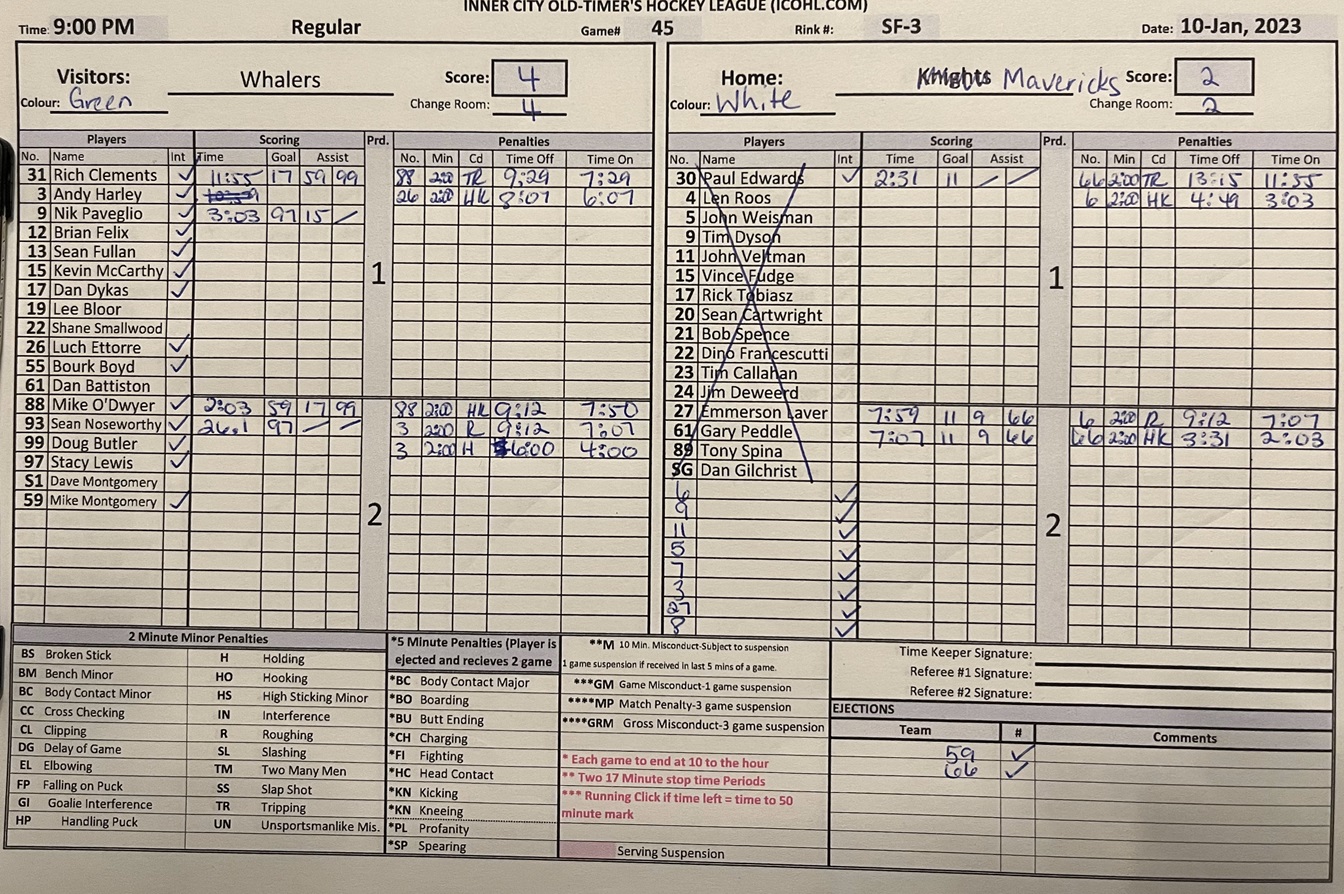 INNER CITY OLD-TIMER'S HOCKEY LEAGUE (ICOHL.COM)
Time: 9:00 PM Regular Game# 45 Rink #: SF-3 Date: 10-Jan, 2023
Visitors: Whalers Score: 4
Colour: Green Change Room: 4
Home: Knights Mavericks Score: 2
Colour: White Change Room: 2
Players Scoring Prd. Penalties
No. Name Int Time Goal Assist No. Min Cd Time Off Time On
31 Rich Clements ✓ 11:55 17 59 99 88 2:00 TR 9:29 7:29
3 Andy Harley ✓ 26 2:00 HK 8:07 6:07
9 Nik Paveglio ✓ 3:03 97 15 /
12 Brian Felix ✓
13 Sean Fullan ✓
15 Kevin McCarthy ✓
17 Dan Dykas ✓
1
19 Lee Bloor
22 Shane Smallwood
26 Luch Ettorre ✓
55 Bourk Boyd ✓
61 Dan Battiston
88 Mike O'Dwyer ✓ 2:03 59 17 99 88 2:00 HK 9:12 7:50
93 Sean Noseworthy ✓ 26.1 97 / / 3 2:00 R 9:12 7:07
99 Doug Butler ✓ 3 2:00 H 6:00 4:00
97 Stacy Lewis ✓
S1 Dave Montgomery
59 Mike Montgomery ✓
2
Players Scoring Prd. Penalties
No. Name Int Time Goal Assist No. Min Cd Time Off Time On
30 Paul Edwards ✓ 2:31 11 / / 66 2:00 TR 13:15 11:55
4 Len Roos 6 2:00 HK 4:49 3:03
5 John Weisman
9 Tim Dyson
11 John Veltman
15 Vince Fudge
1
17 Rick Tobiasz
20 Sean Cartwright
21 Bob Spence
22 Dino Francescutti
23 Tim Callahan
24 Jim Deweerd
27 Emmerson Laver 7:59 11 9 66 6 2:00 R 9:12 7:07
61 Gary Peddle 7:07 11 9 66 66 2:00 HK 3:31 2:03
89 Tony Spina
SG Dan Gilchrist
6 ✓
9 ✓
2
11 ✓
5 ✓
7 ✓
3 ✓
27 ✓
8 ✓
2 Minute Minor Penalties
BS Broken Stick H Holding
BM Bench Minor HO Hooking
BC Body Contact Minor HS High Sticking Minor
CC Cross Checking IN Interference
CL Clipping R Roughing
DG Delay of Game SL Slashing
EL Elbowing TM Two Many Men
FP Falling on Puck SS Slap Shot
GI Goalie Interference TR Tripping
HP Handling Puck UN Unsportsmanlike Mis.
*5 Minute Penalties (Player is
ejected and recieves 2 game
*BC Body Contact Major
*BO Boarding
*BU Butt Ending
*CH Charging
*FI Fighting
*HC Head Contact
*KN Kicking
*KN Kneeing
*PL Profanity
*SP Spearing
**M 10 Min. Misconduct-Subject to suspension
1 game suspension if received in last 5 mins of a game.
***GM Game Misconduct-1 game suspension
****MP Match Penalty-3 game suspension
****GRM Gross Misconduct-3 game suspension
* Each game to end at 10 to the hour
** Two 17 Minute stop time Periods
*** Running Click if time left = time to 50
minute mark
Serving Suspension
Time Keeper Signature:
Referee #1 Signature:
Referee #2 Signature:
EJECTIONS
Team # Comments
59 ✓
66 ✓